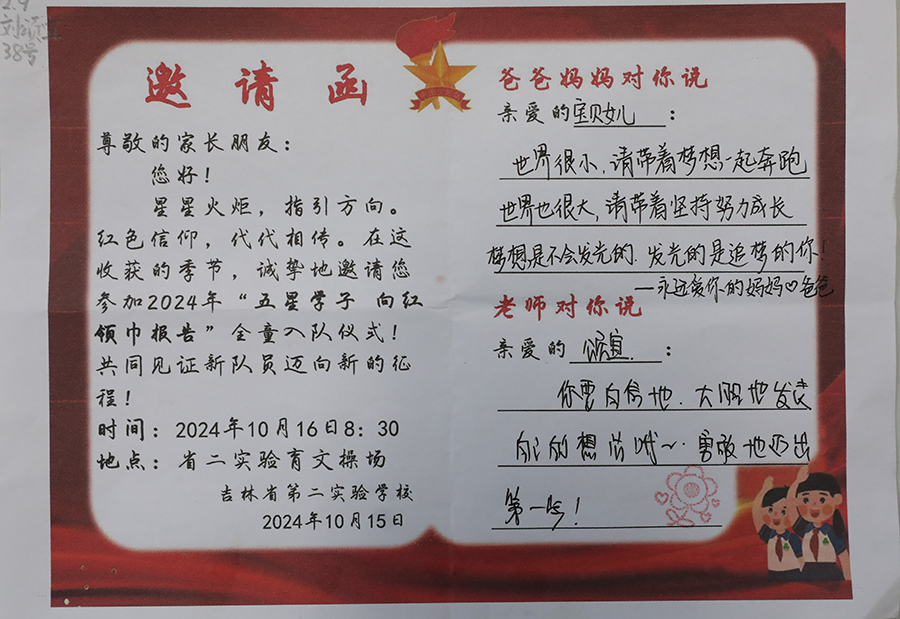 2.9
38号
邀请函
尊敬的家长朋友：
您好！
星星火炬，指引方向。
红色信仰，代代相传。在这
收获的季节，诚挚地邀请您
参加2024年“五星学子 向红
领巾报告”全童入队仪式！
共同见证新队员迈向新的征
程！
时间：2024年10月16日8：30
地点：省二实验育文操场
吉林省第二实验学校
2024年10月15日
爸爸妈妈对你说
亲爱的宝贝女儿：
世界很小，请带着梦想一起奔跑
世界也很大，请带着坚持努力成长
梦想是不会发光的．发光的是追梦的你！
—永远爱你的妈妈♡爸爸
老师对你说
亲爱的 颂宜 ：
你要自信地．大胆地发表
自己的想法哦～勇敢地迈出
第一步！